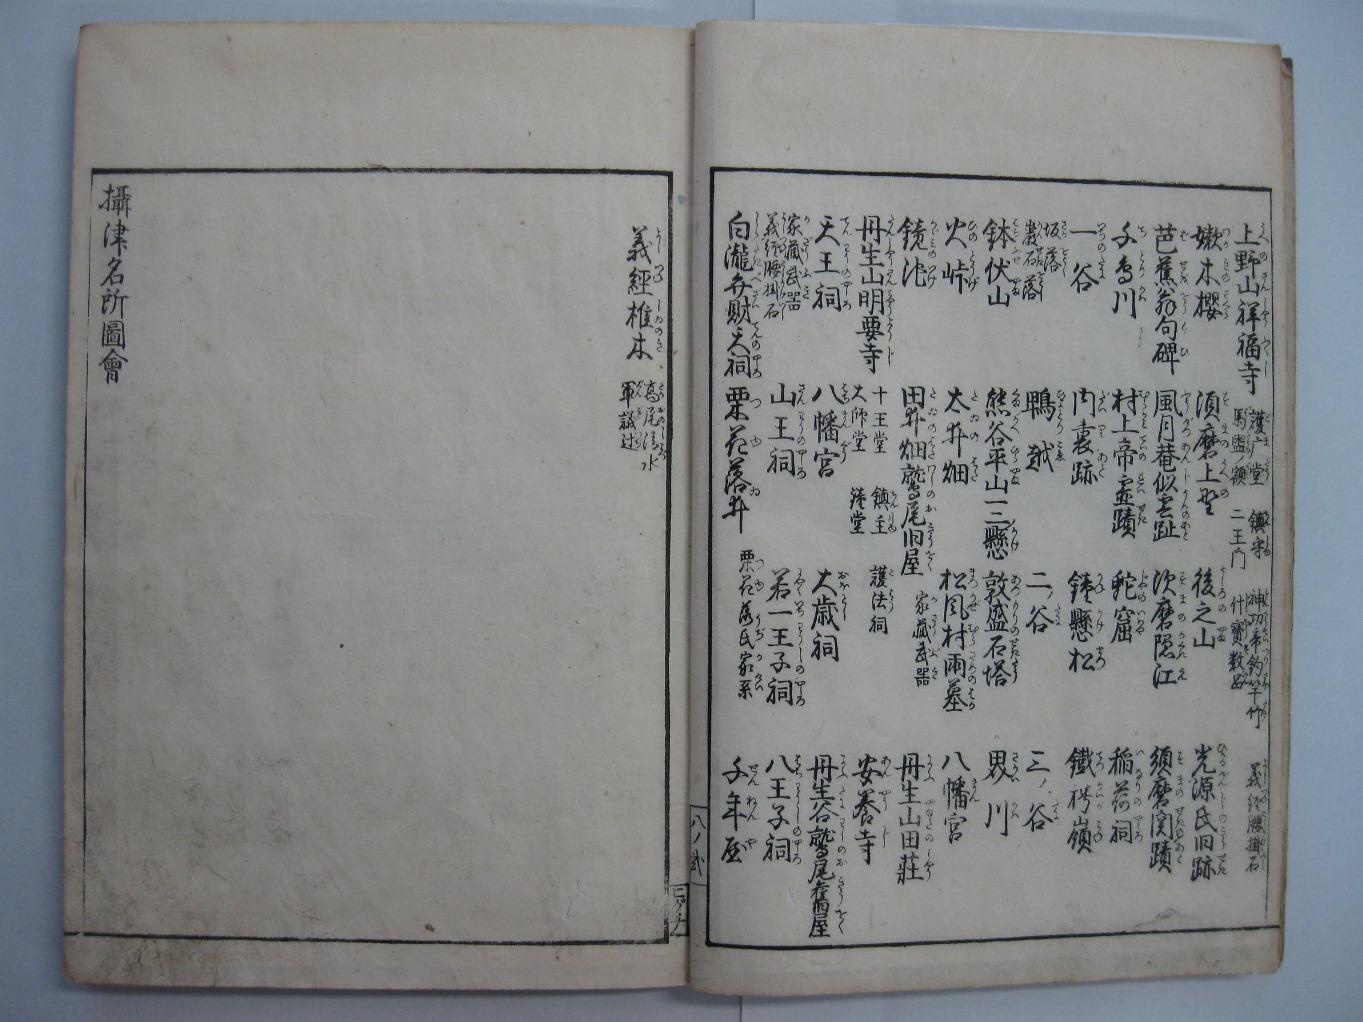 上野山祥福寺 護广堂 鎮守 神功帝釣竿竹 義経腰掛石
馬盥額 二王門 什寳数品
嫩木櫻 須磨上野 後之山 光源氏旧跡
芭蕉翁句碑 風月菴似雲趾 須磨隠江 須磨関蹟
千鳥川 村上帝霊蹟 蛇窟 稲荷祠
一谷 内裏跡 鐘懸松 鐵枴嶺
坂落 鵯越 二ノ谷 三ノ谷
巖石落
鉢伏山 熊谷平山一二懸 敦盛石塔 界川
火峠 太井畑 松風村雨墓 八幡宮
鏡池 田井畑鷲尾旧屋 家蔵武器 丹生山田荘
丹生山明要寺 十王堂 鎮主 護法祠 安養寺
大師堂 瀧堂
天王祠 八幡宮 大歳祠 丹生谷鷲尾舊屋
家蔵武器
義経腰掛石
山王祠 若一王子祠 八王子祠
白瀧弁財天祠 栗花落井 栗花落氏家系 千年屋
八ノ弐
義經椎木 高尾清水
軍議辻
攝津名所圖會